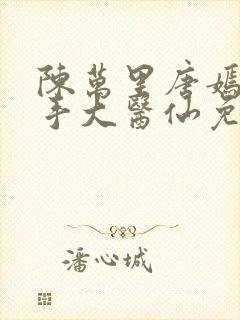 陳萬里唐嫣
手大醫仙免
潘心城